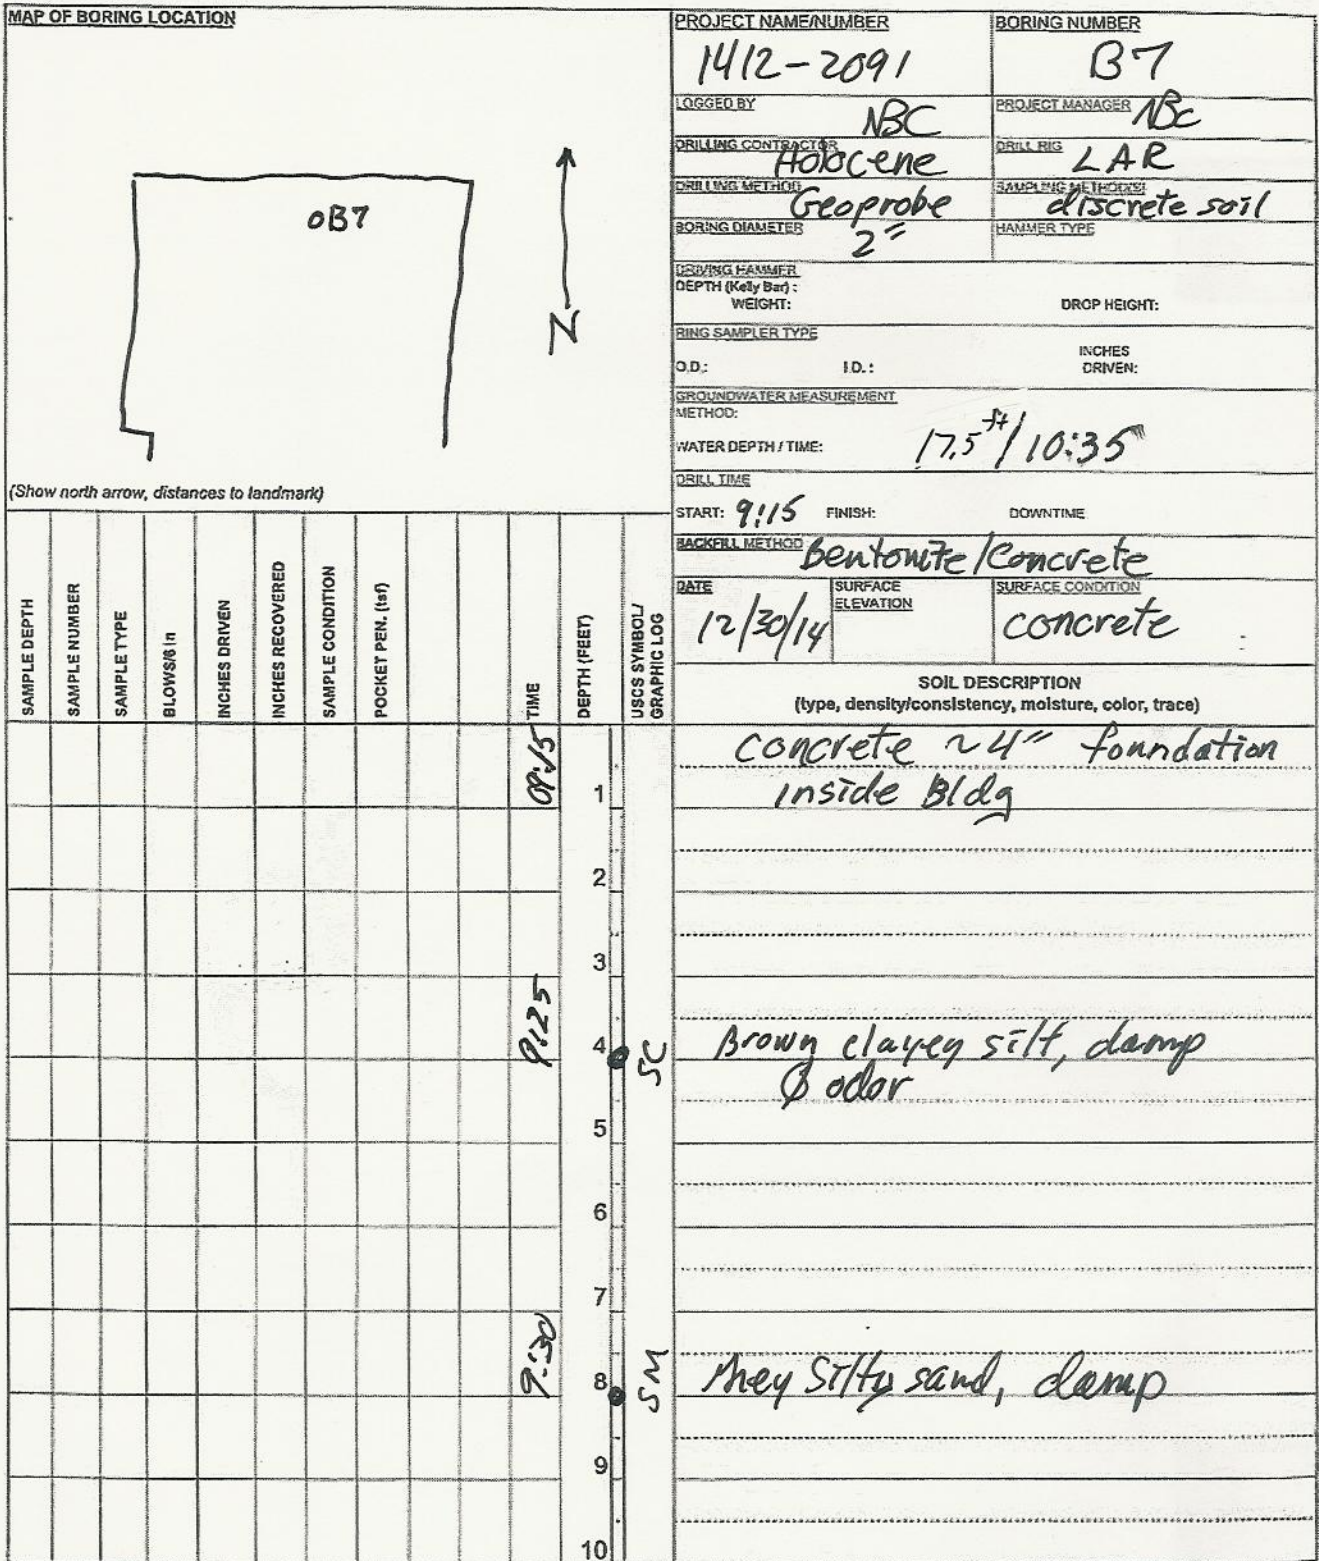 MAP OF BORING LOCATION
oB7
N
(Show north arrow, distances to landmark)
PROJECT NAME/NUMBER
1412-2091
BORING NUMBER
B7
LOGGED BY
NBC
PROJECT MANAGER
NBC
DRILLING CONTRACTOR
Holocene
DRILL RIG
LAR
DRILLING METHOD
Geoprobe
SAMPLING METHOD(S)
discrete soil
BORING DIAMETER
2"
HAMMER TYPE
DRIVING HAMMER
DEPTH (Kelly Bar) :
WEIGHT:
DROP HEIGHT:
RING SAMPLER TYPE
O.D.:
I.D. :
INCHES
DRIVEN:
GROUNDWATER MEASUREMENT
METHOD:
WATER DEPTH / TIME:
17.5 ft / 10:35
DRILL TIME
START: 9:15
FINISH:
DOWNTIME
BACKFILL METHOD
Bentonite/Concrete
DATE
12/30/14
SURFACE
ELEVATION
SURFACE CONDITION
concrete
SAMPLE DEPTH
SAMPLE NUMBER
SAMPLE TYPE
BLOWS/6 in
INCHES DRIVEN
INCHES RECOVERED
SAMPLE CONDITION
POCKET PEN. (tsf)
TIME
DEPTH (FEET)
USCS SYMBOL/
GRAPHIC LOG
SOIL DESCRIPTION
(type, density/consistency, moisture, color, trace)
09:15
concrete ~4" foundation
inside Bldg
1
2
3
9:25
4
SC
Brown clayey silt, damp
Ø odor
5
6
7
9:30
8
SM
silty sand, damp
9
10